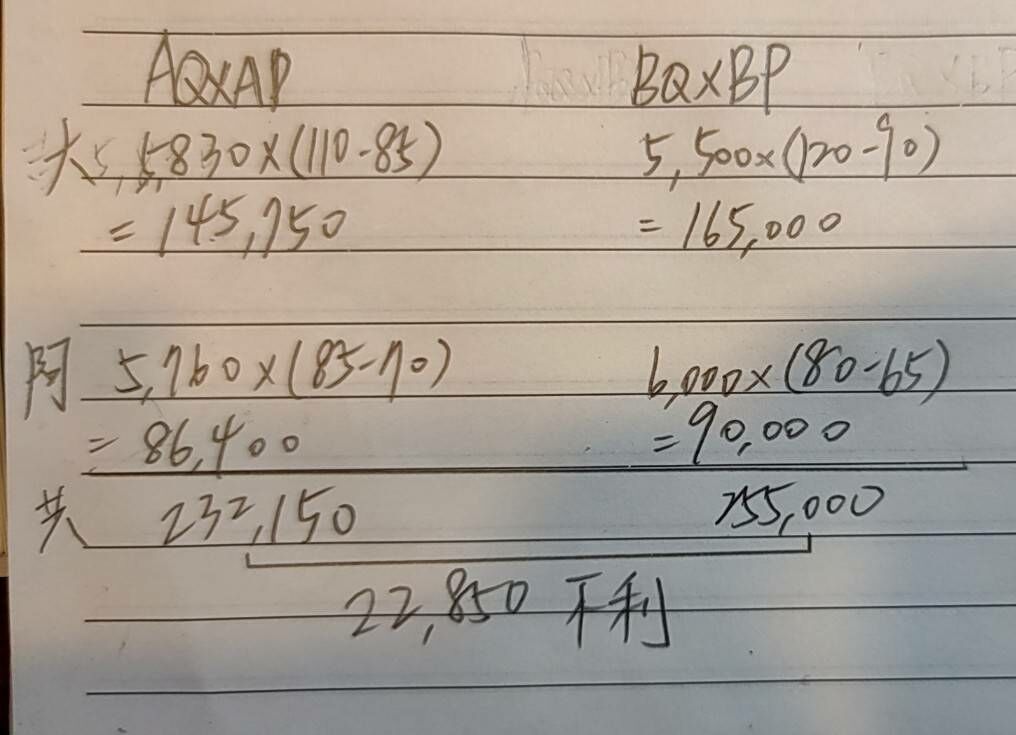 AQXAP BQXBP
大 5,830×(110-85) 5,500×(120-90)
= 145,750 = 165,000
阿 5,760×(85-70) 6,000×(80-65)
= 86,400 = 90,000
共 232,150 255,000
22,850 不利